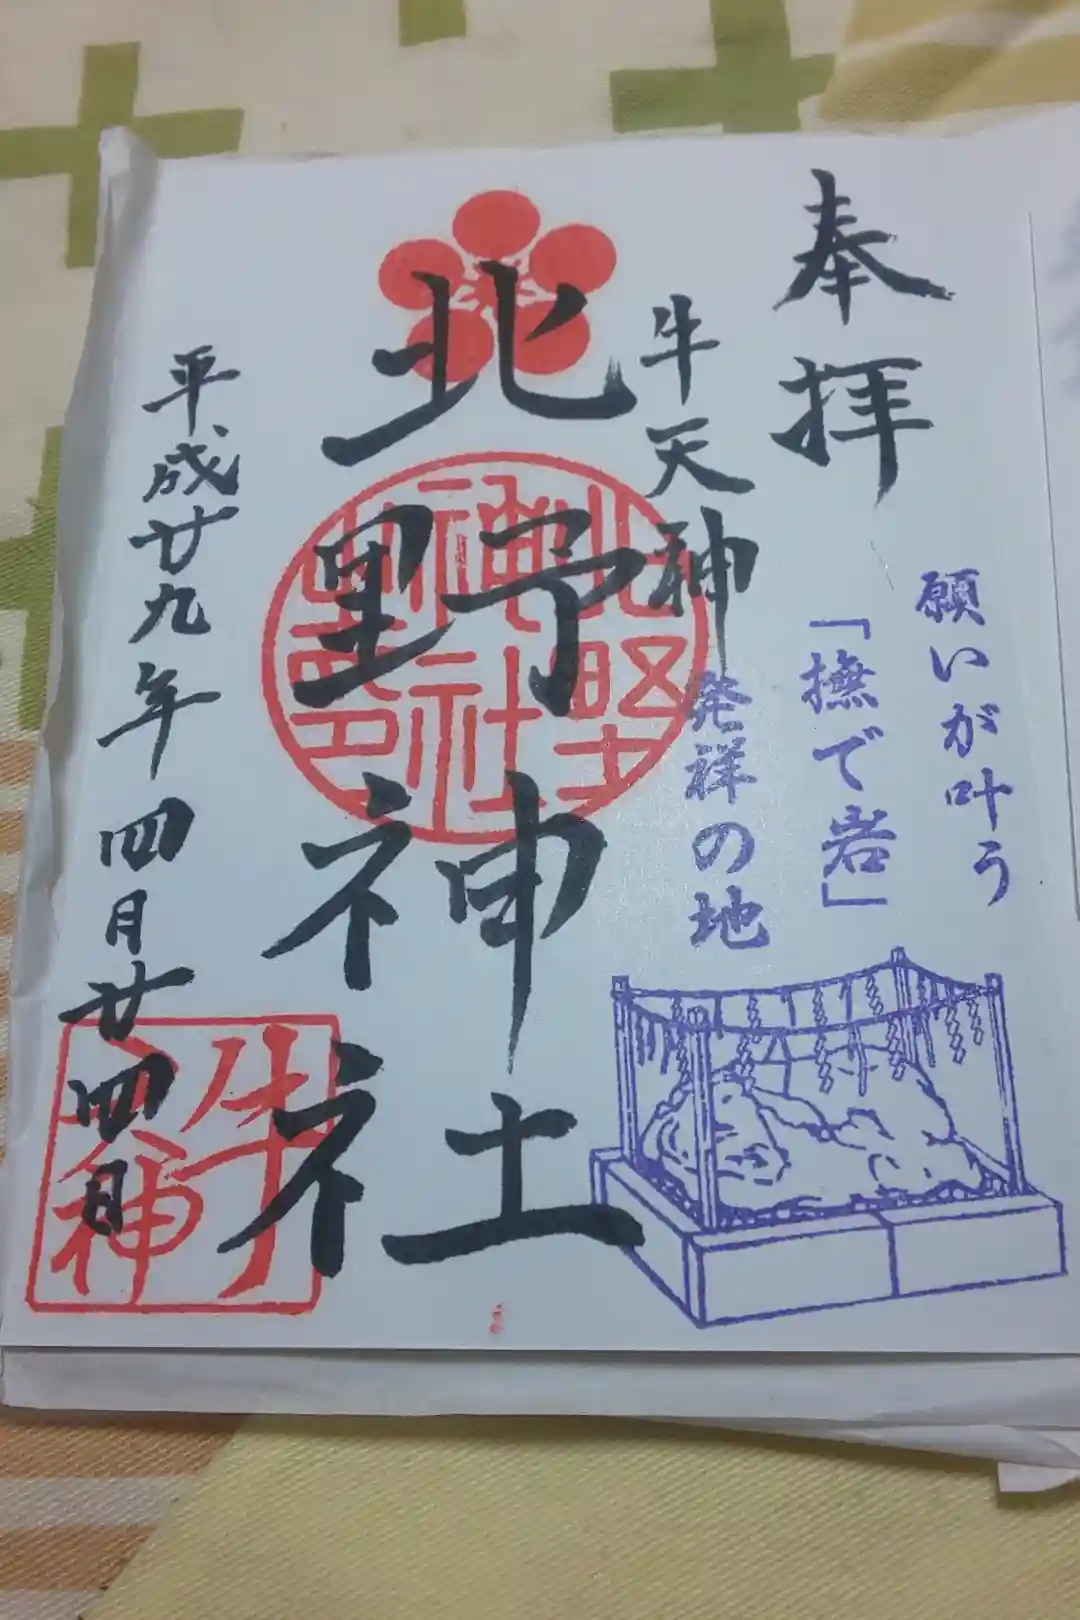 奉拝
願いが叶う
「撫で岩」
牛天神
発祥の地
北野神社
北野
神社
之印
牛
天神
平成廿九年四月廿四日